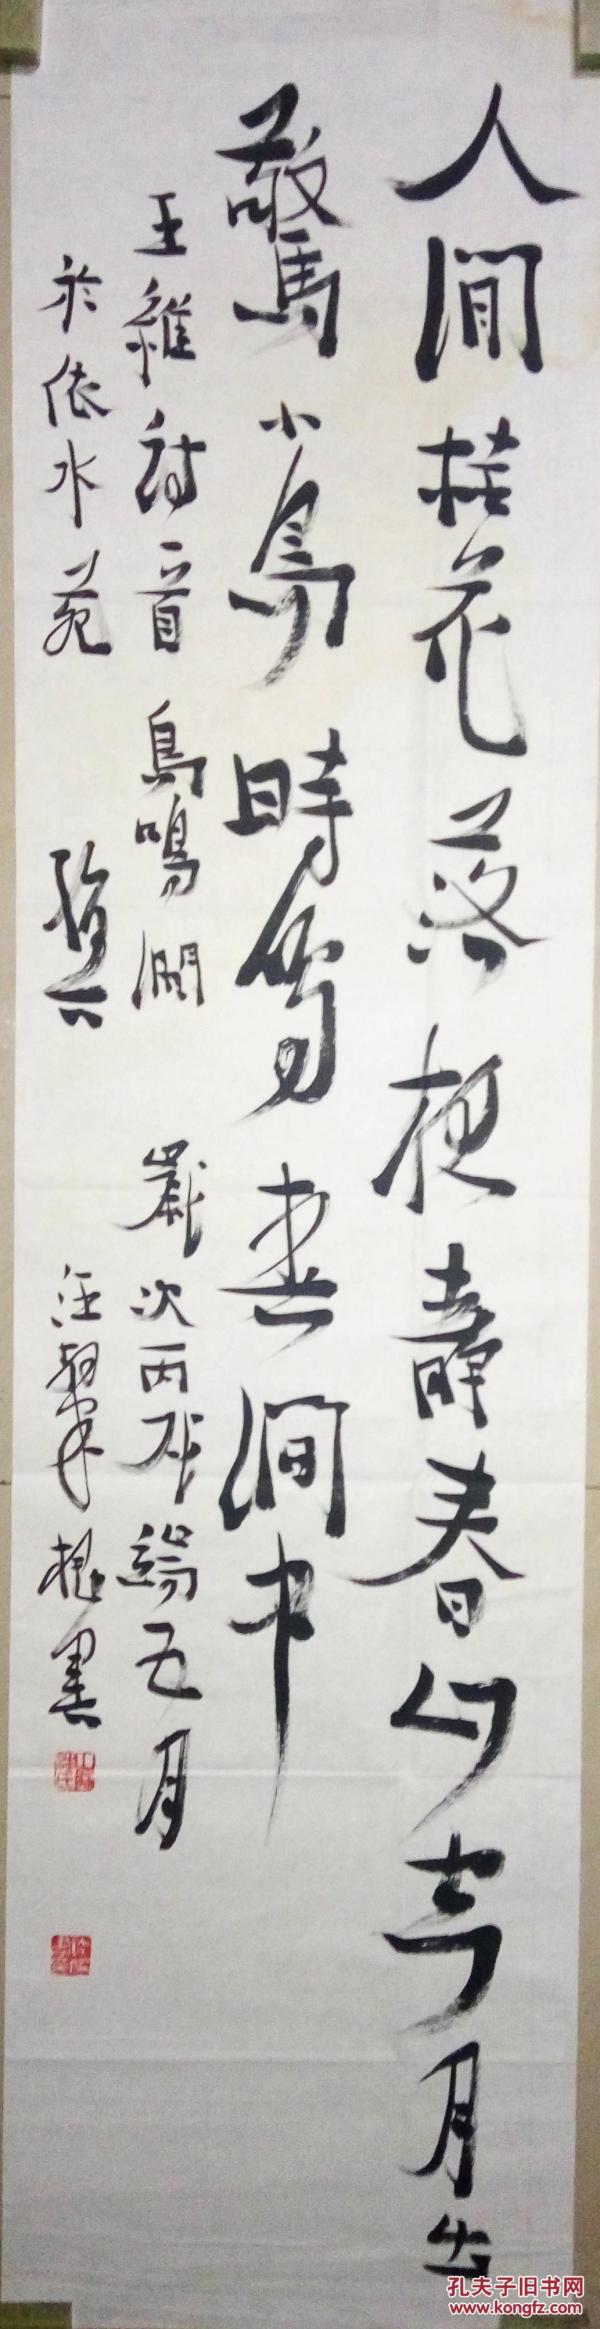 人間桂花落夜靜春山空月出
驚小鳥時鳴春澗中
王維詩一首 鳥鳴澗 歲次丙戌端五月
於依水苑 汪書
孔夫子旧书网
www.kongfz.com